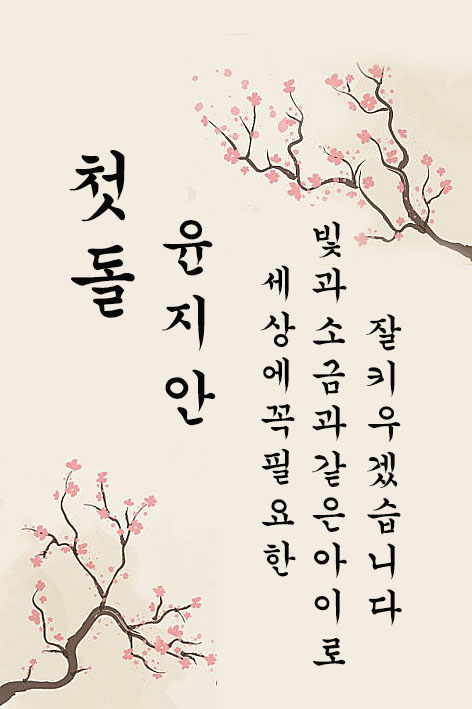 첫돌
윤지안
세상에꼭필요한
빛과소금과같은아이로
잘키우겠습니다